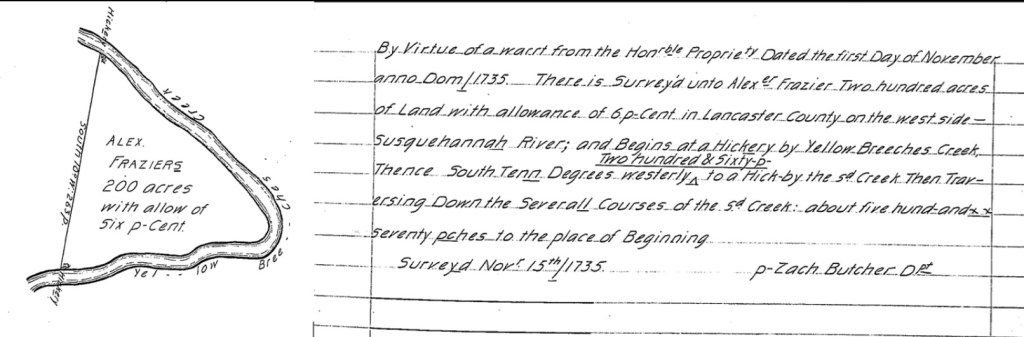 Hickery
Creek
South 10° W. 263 p.
ALEX.
FRAZIERS
200 acres
with allow of
Six p-Cent.
Ches
Bree
Yel... low
Hickery
By Virtue of a warrt from the Honrble Propriety Dated the first Day of November
anno Dom/1735. There is Survey'd unto Alexer Frazier Two hundred acres
of Land with allowance of 6 p-Cent in Lancaster County on the west side—
Susquehannah River; and Begins at a Hickery by Yellow Breeches Creek,
Two hundred & Sixty-p-
Thence South Tenn Degrees westerly ^ to a Hick-by the sd Creek Then Trav-
ersing Down the Severall Courses of the sd Creek: about five hund-and x x
seventy pches to the place of Beginning
Surveyd Novr 15th/1735. p-Zach Butcher Dpt